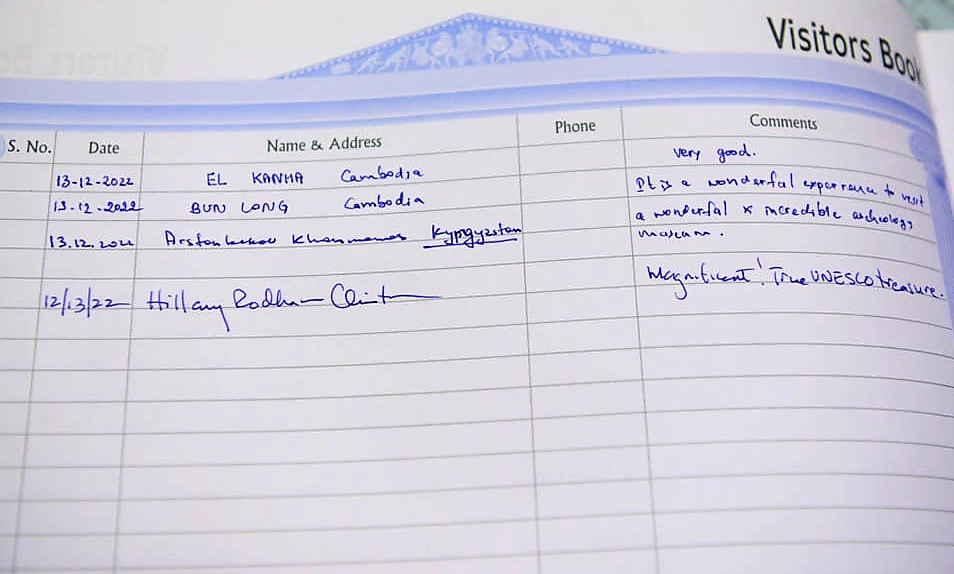 Visitors Book
S. No. Date Name & Address Phone Comments
very good.
13-12-2022 EL KANHA Cambodia
It is a wonderful experience to visit
13-12-2022 BUN LONG Cambodia
a wonderful & incredible archeology
13.12.2022 Kyrgyzstan
museum.
Magnificent! True UNESCO treasure.
12/13/22 Hillary Rodham Clinton